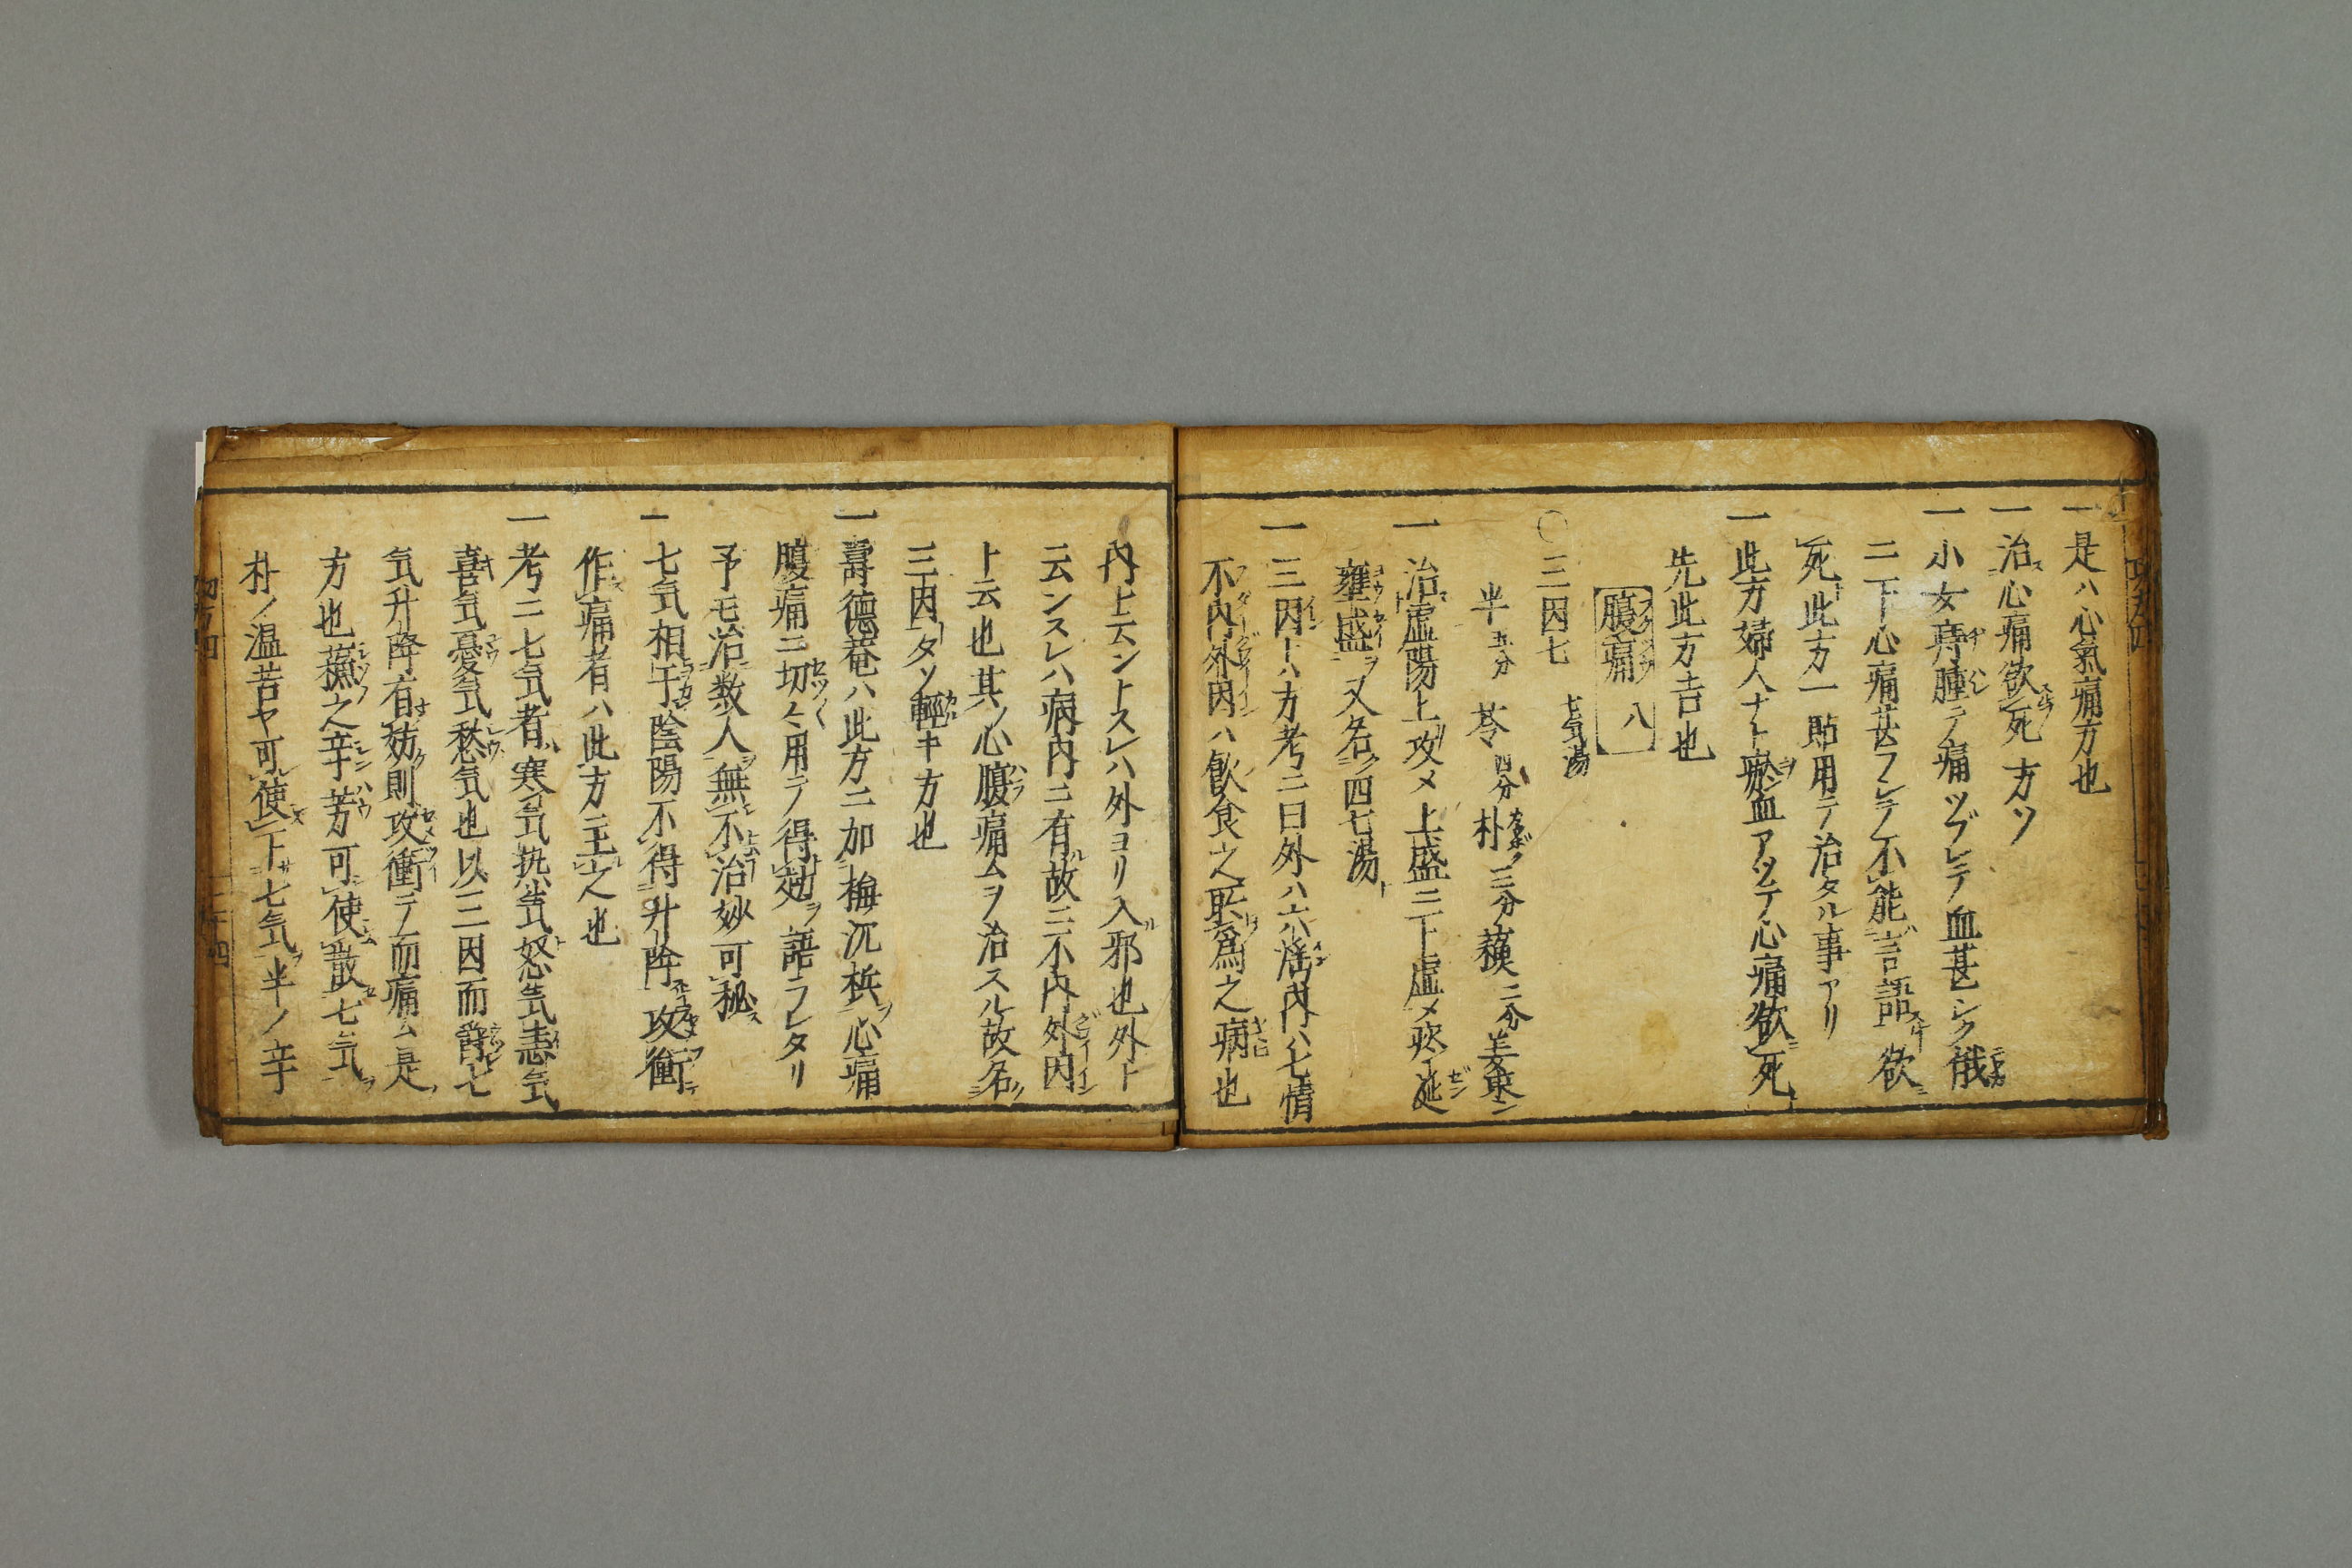 一是ハ心氣痛方也
一治心痛欲死方ソ
一小女蓐腫テ痛ツブレテ血甚シク俄
ニ下心痛甚フレテ不能言語欲
死此方一貼用テ治タル事アリ
一此方婦人ナト瘀血アツテ心痛欲死
先此方吉也
腹痛 八
〇三因七 七気湯
半五分 苓四分 朴三分 蘓二分 姜棗
一治虚陽上攻メ上盛ニ下虚メ痰涎
壅盛ヲ又名四七湯
一三因トハ方考ニ曰外ハ六淫内ハ七情
不内外因ハ飲食之所爲之病也
内ト云ントスレハ外ヨリ入邪也外ト
云ンスレハ病内ニ有故ニ不内外因
ト云也其心腹痛ムヲ治スル故名
三因タソ輕キ方也
一壽德菴ハ此方ニ加梅沉梹心痛
腹痛ニ切々用テ得効ヲ語ラレタリ
予モ治数人無不治妙可秘
一七気相干陰陽不得升降攻衝
作痛者ハ此方主之也
一考ニ七気者寒気热気怒気恚気
喜気憂気愁気也以三因而欝七
気升降有妨則攻衝テ而痛ム是
方也蘓之辛芳可使散七気
朴ノ温苦ヤ可使下七気半ノ辛